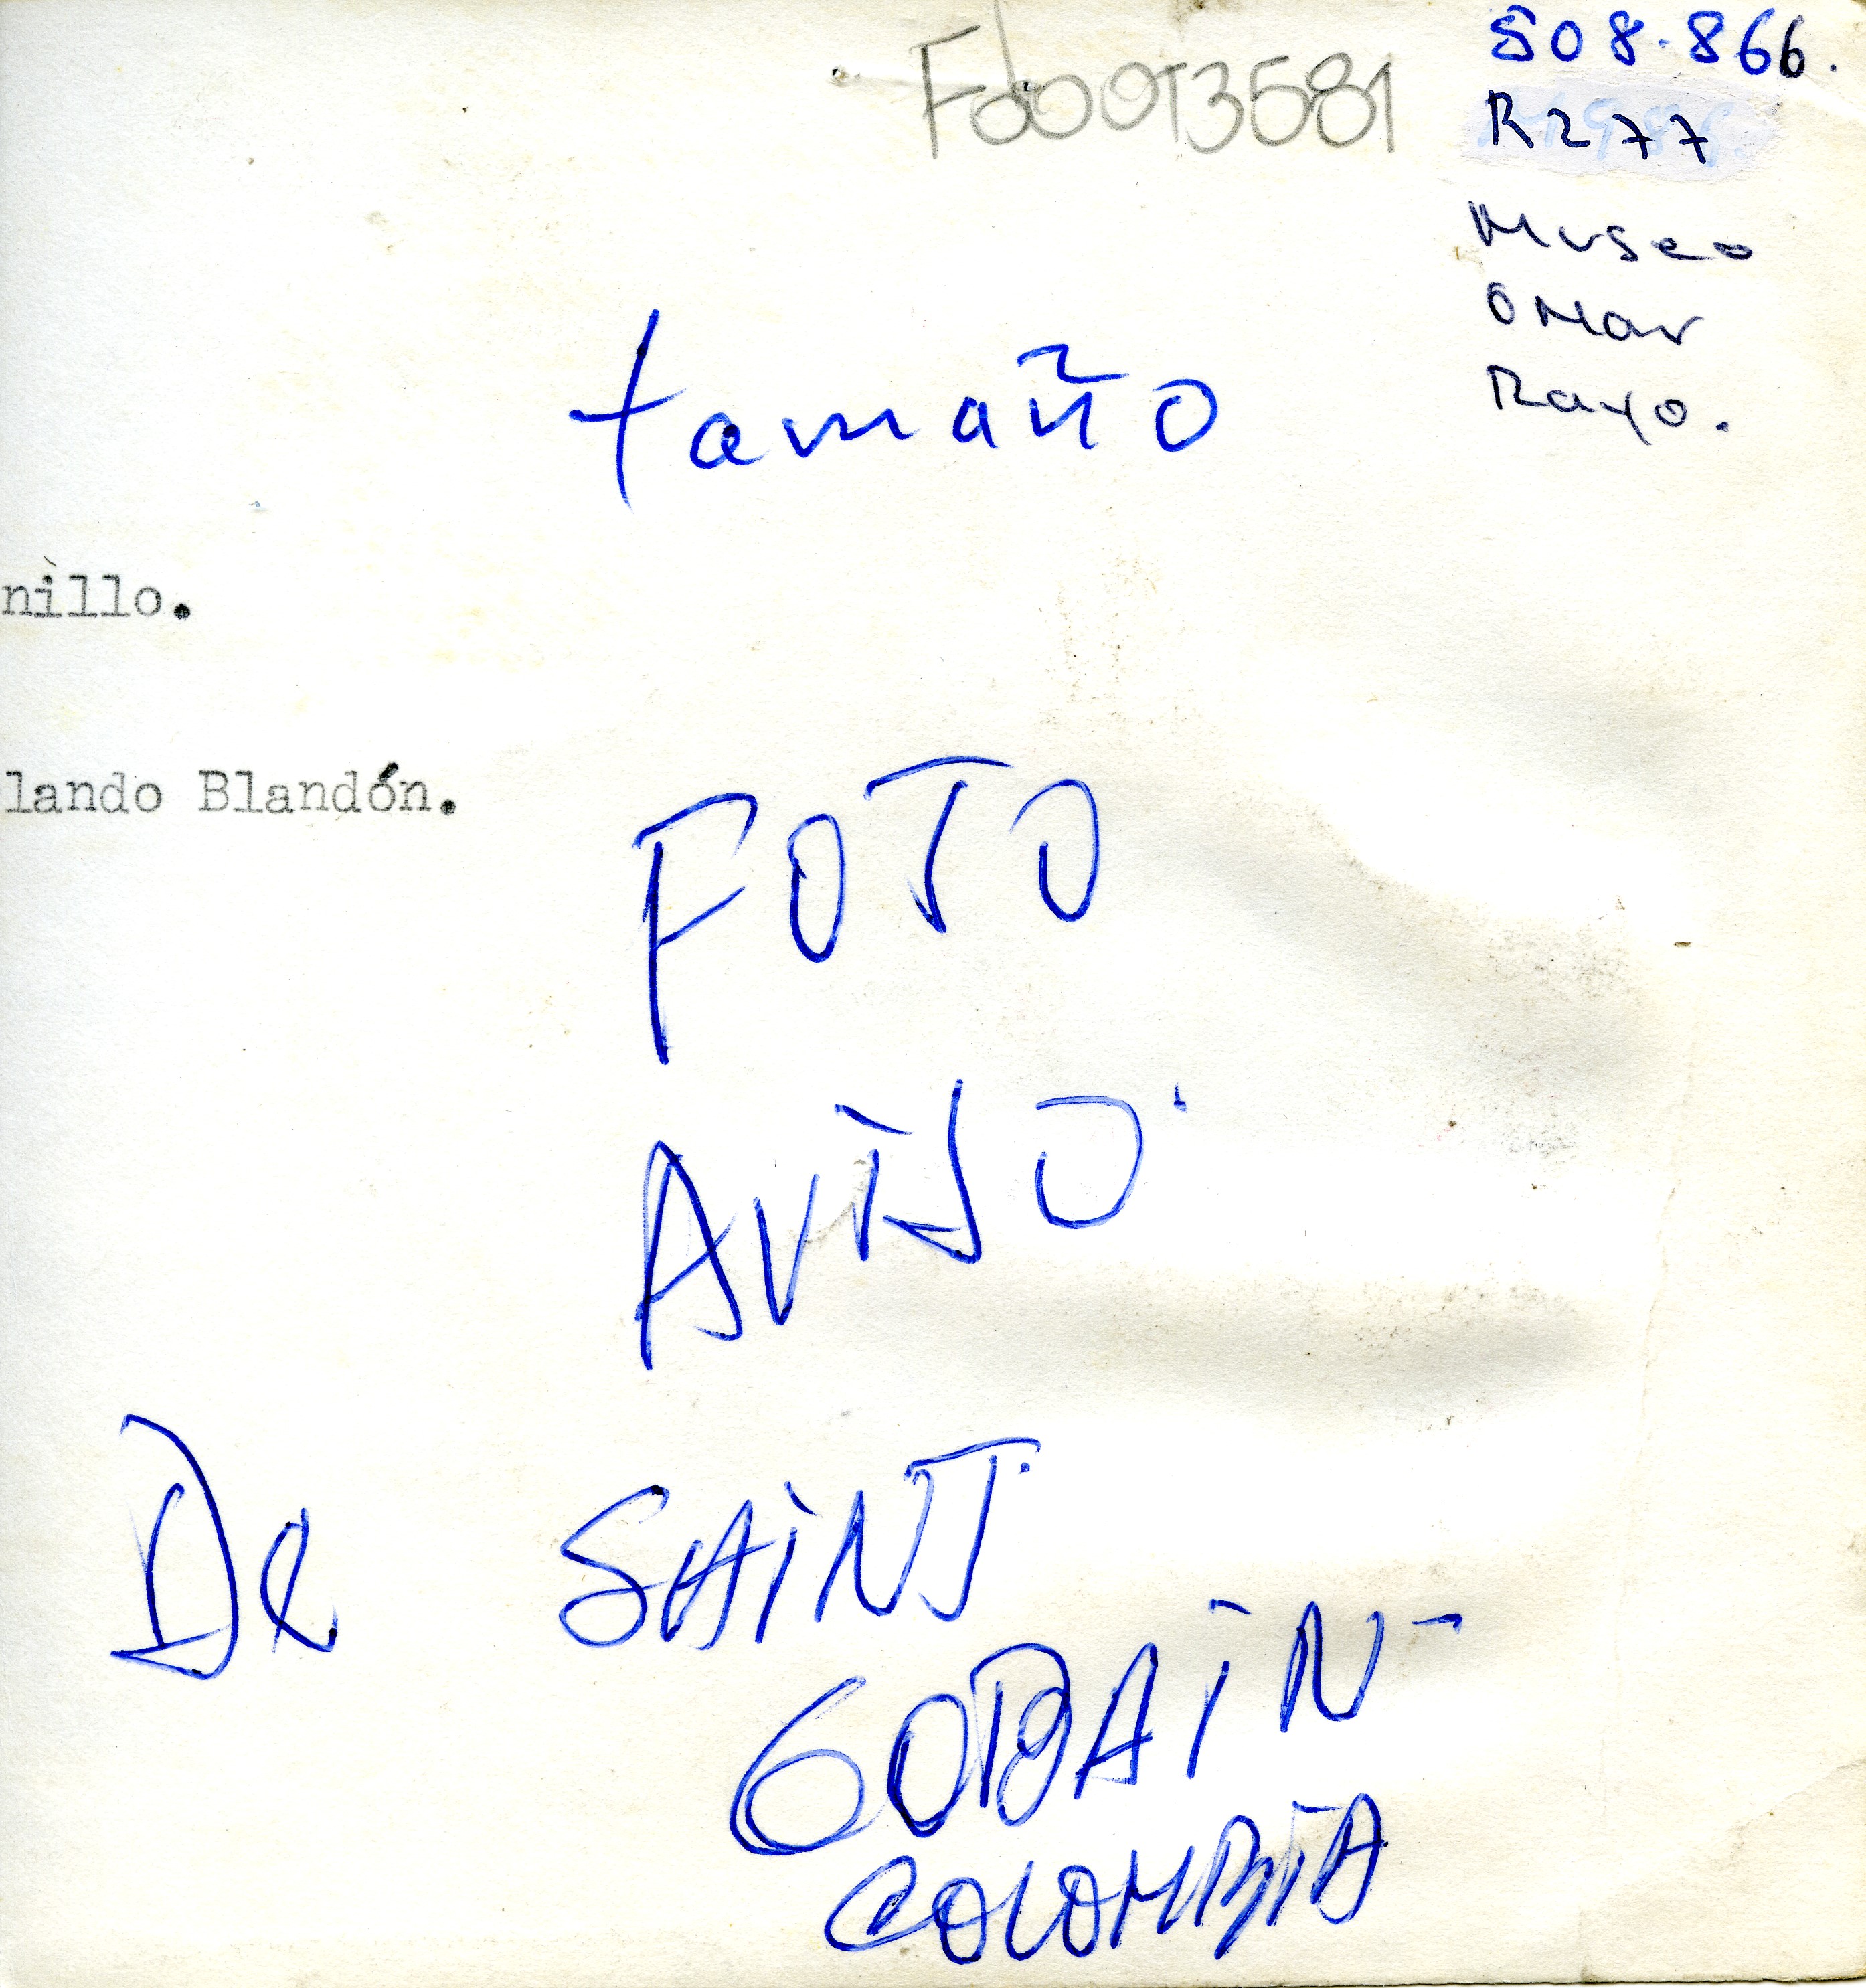 508-866.
Fdo013581
R277
Museo
Omar
Rayo.
tamaño
nillo.
lando Blandón.
FOTO
AViSO
De SAiNT
GOBAiN
COLOMBiA